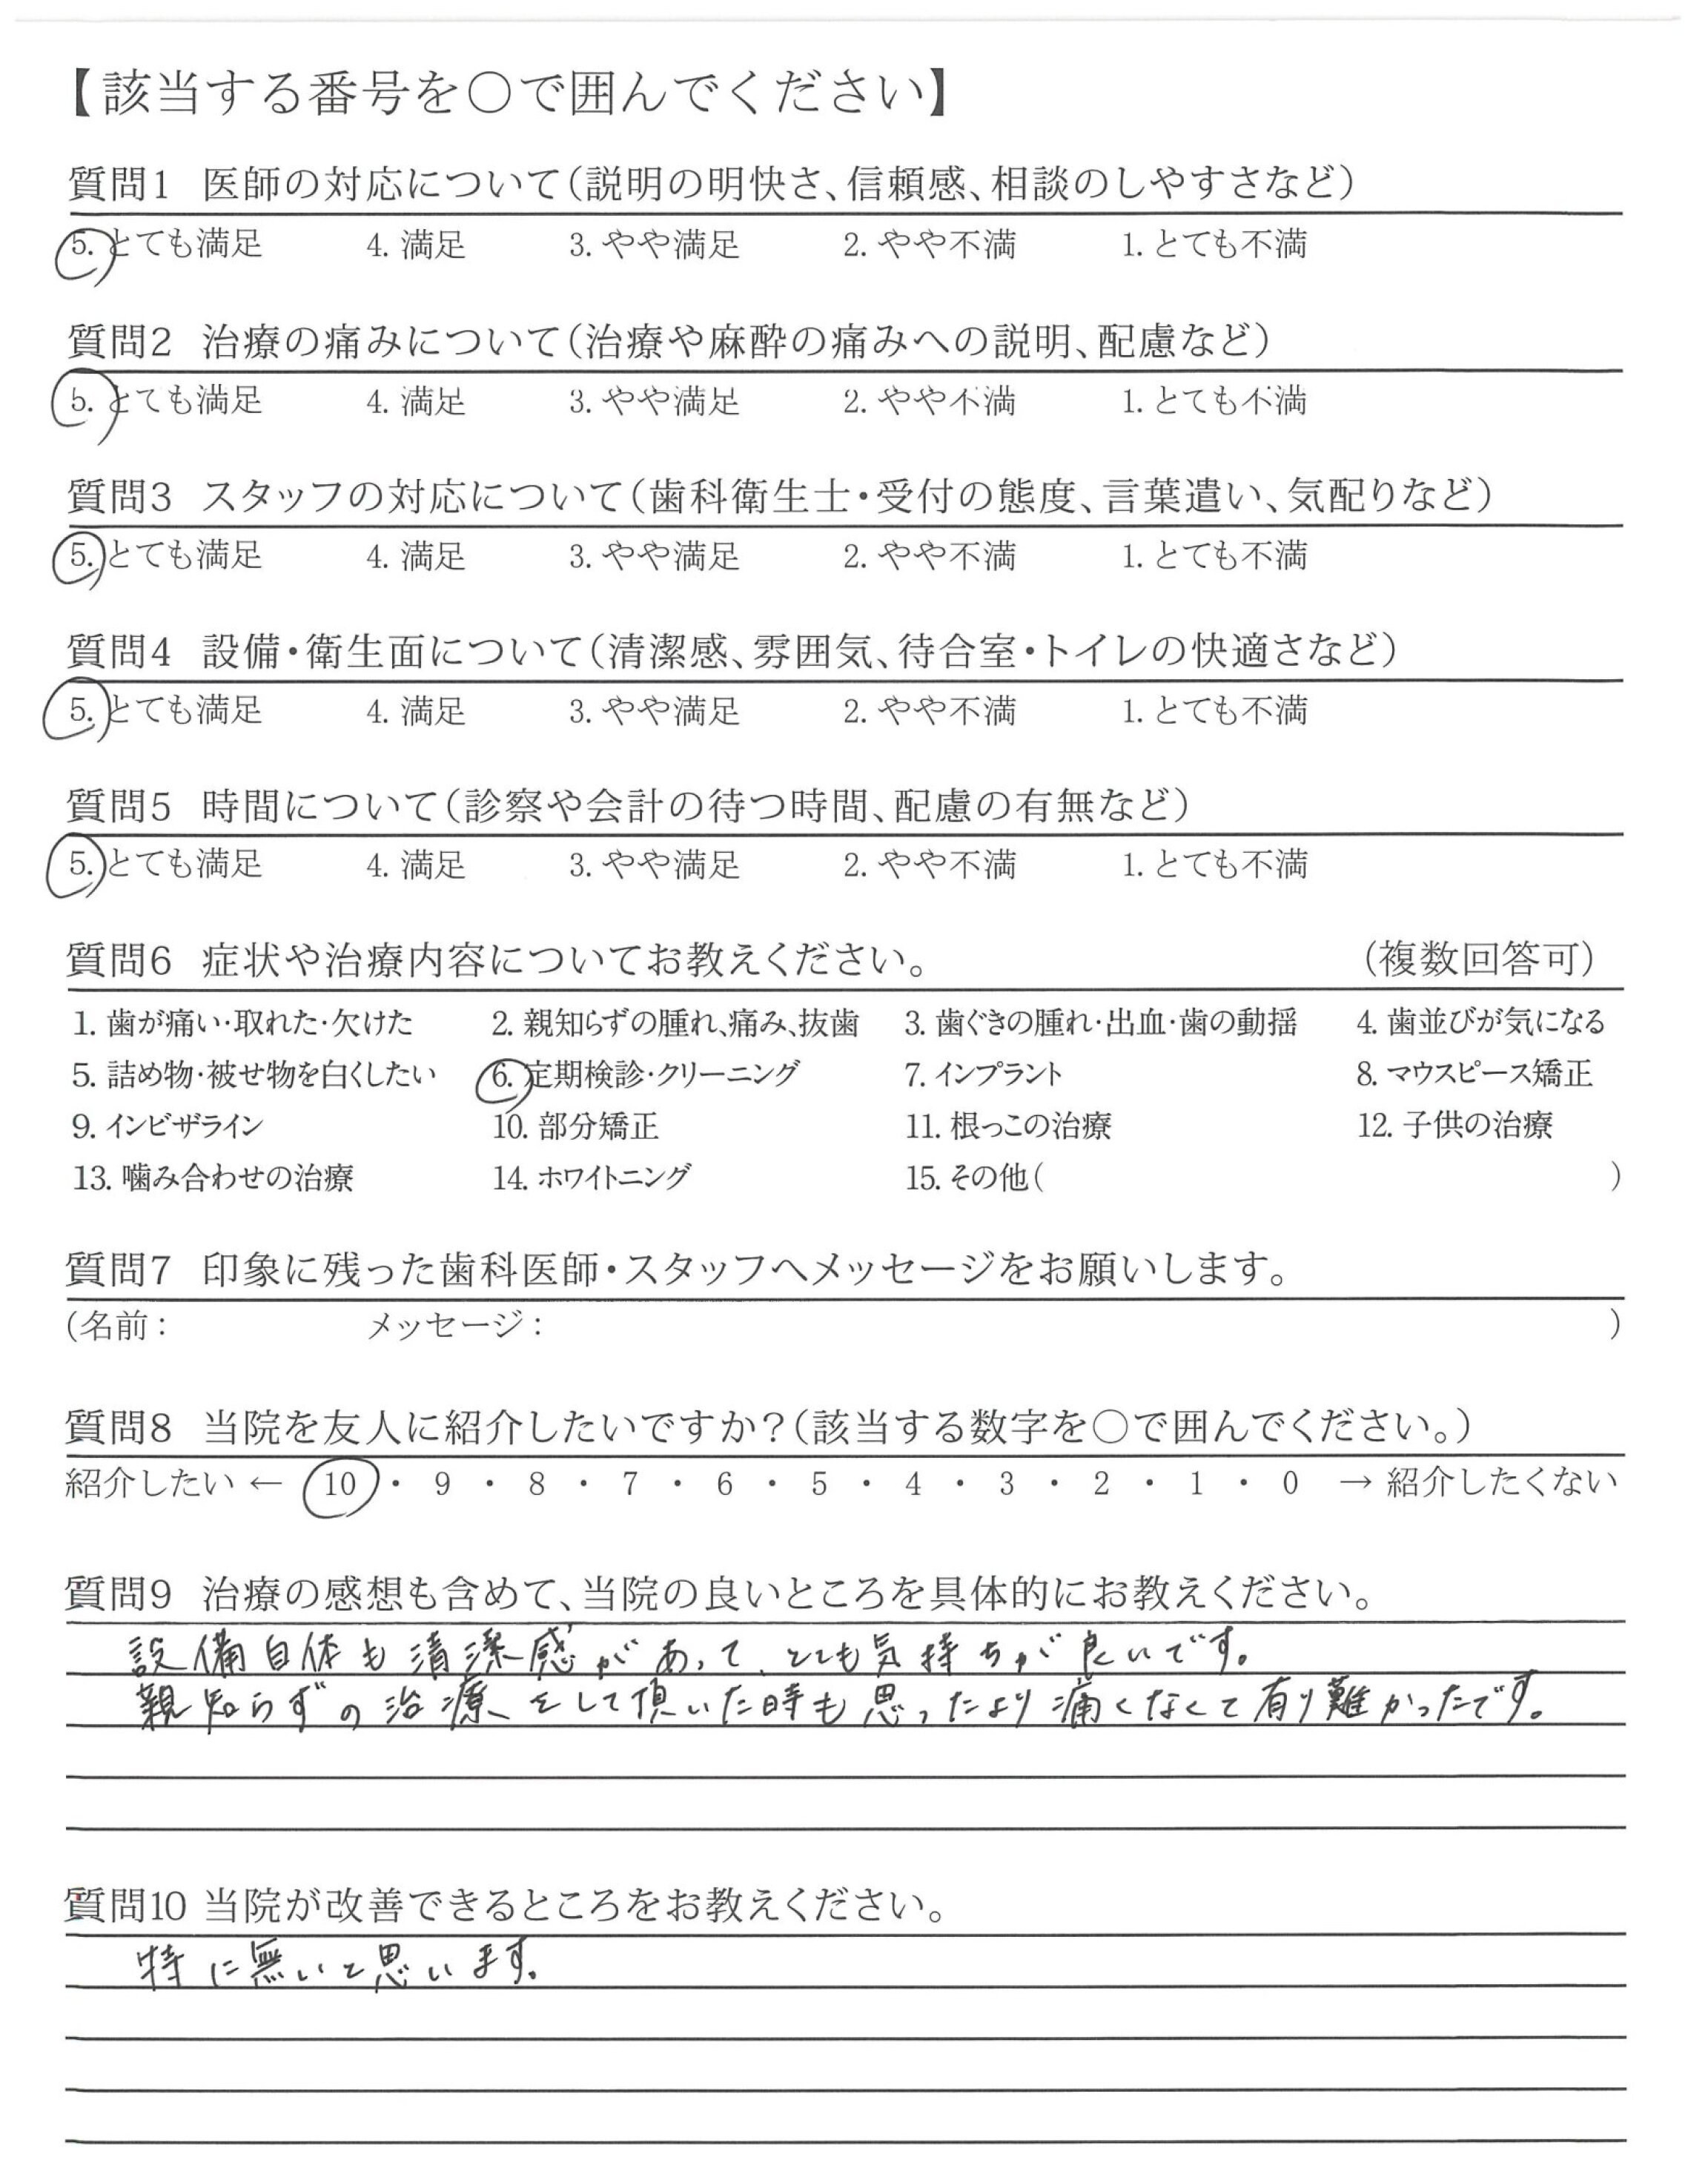 【該当する番号を○で囲んでください】
質問1 医師の対応について(説明の明快さ、信頼感、相談のしやすさなど)
5. とても満足 4. 満足 3. やや満足 2. やや不満 1. とても不満
質問2 治療の痛みについて(治療や麻酔の痛みへの説明、配慮など)
5. とても満足 4. 満足 3. やや満足 2. やや不満 1. とても不満
質問3 スタッフの対応について(歯科衛生士・受付の態度、言葉遣い、気配りなど)
5. とても満足 4. 満足 3. やや満足 2. やや不満 1. とても不満
質問4 設備・衛生面について(清潔感、雰囲気、待合室・トイレの快適さなど)
5. とても満足 4. 満足 3. やや満足 2. やや不満 1. とても不満
質問5 時間について(診察や会計の待つ時間、配慮の有無など)
5. とても満足 4. 満足 3. やや満足 2. やや不満 1. とても不満
質問6 症状や治療内容についてお教えください。 (複数回答可)
1. 歯が痛い・取れた・欠けた 2. 親知らずの腫れ、痛み、抜歯 3. 歯ぐきの腫れ・出血・歯の動揺 4. 歯並びが気になる
5. 詰め物・被せ物を白くしたい 6. 定期検診・クリーニング 7. インプラント 8. マウスピース矯正
9. インビザライン 10. 部分矯正 11. 根っこの治療 12. 子供の治療
13. 噛み合わせの治療 14. ホワイトニング 15. その他( )
質問7 印象に残った歯科医師・スタッフへメッセージをお願いします。
(名前: メッセージ: )
質問8 当院を友人に紹介したいですか?(該当する数字を○で囲んでください。)
紹介したい ← 10 ・ 9 ・ 8 ・ 7 ・ 6 ・ 5 ・ 4 ・ 3 ・ 2 ・ 1 ・ 0 → 紹介したくない
質問9 治療の感想も含めて、当院の良いところを具体的にお教えください。
設備自体も清潔感があって、とても気持ちが良いです。
親知らずの治療をして頂いた時も思ったより痛くなくて有り難かったです。
質問10 当院が改善できるところをお教えください。
特に無いと思います。